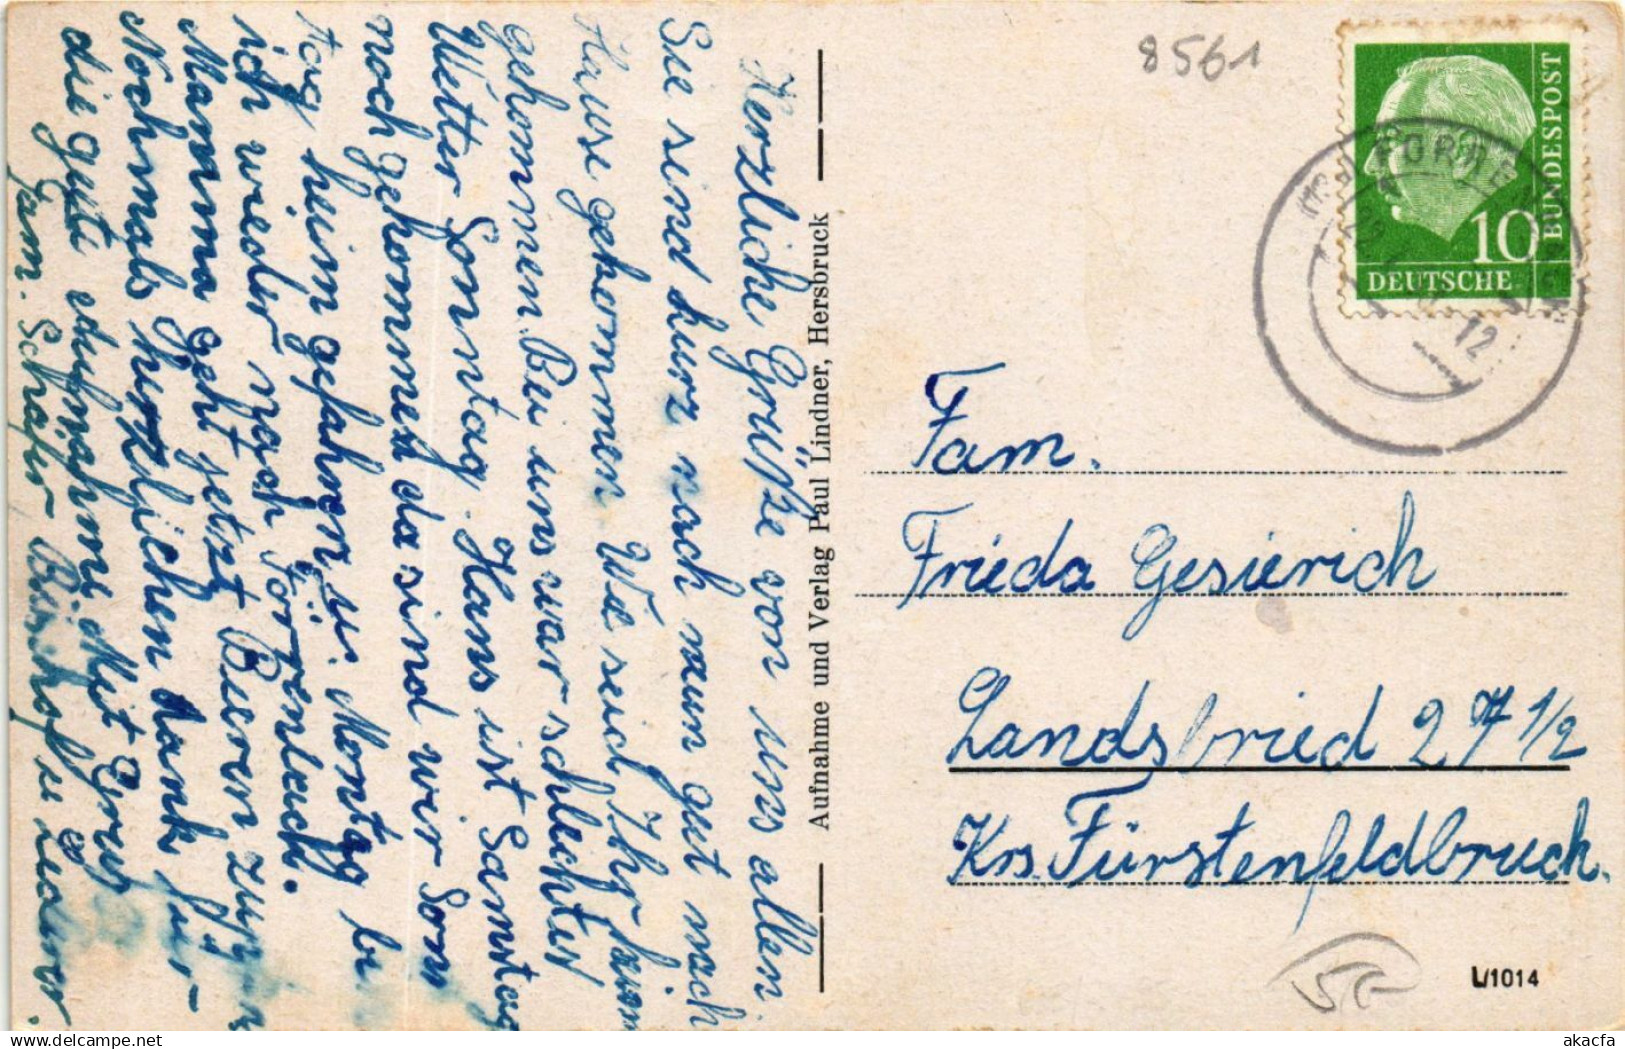 Herzliche Grüße von uns allen
Sie sind kurz nach neun gut nach
Hause gekommen. Wie seid Ihr heim
gekommen. Bei uns war schlechter
Wetter Sonntag. Hans ist Samstag
noch gekommen da sind wir Sonn
tag heim gefahren u. Montag bi
ich wieder nach
Mamma geht jetzt
Nochmals herzlichen Dank für
die gute Mit Gruß
Fam. Schäfer
Aufnahme und Verlag Paul Lindner, Hersbruck
8561
DEUTSCHE
BUNDESPOST
10
12
Fam.
Frieda Gesierich
Landsbried 27 1/2
Krs. Fürstenfeldbruck.
L/1014
akacfa